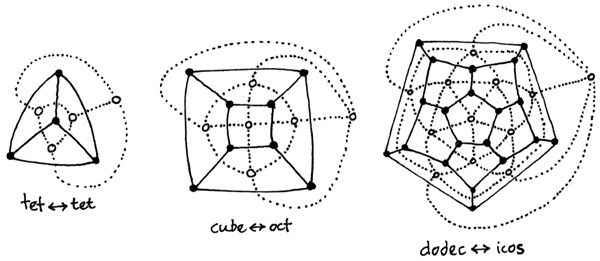 tet↔tet
cube↔oct
dodec↔icos